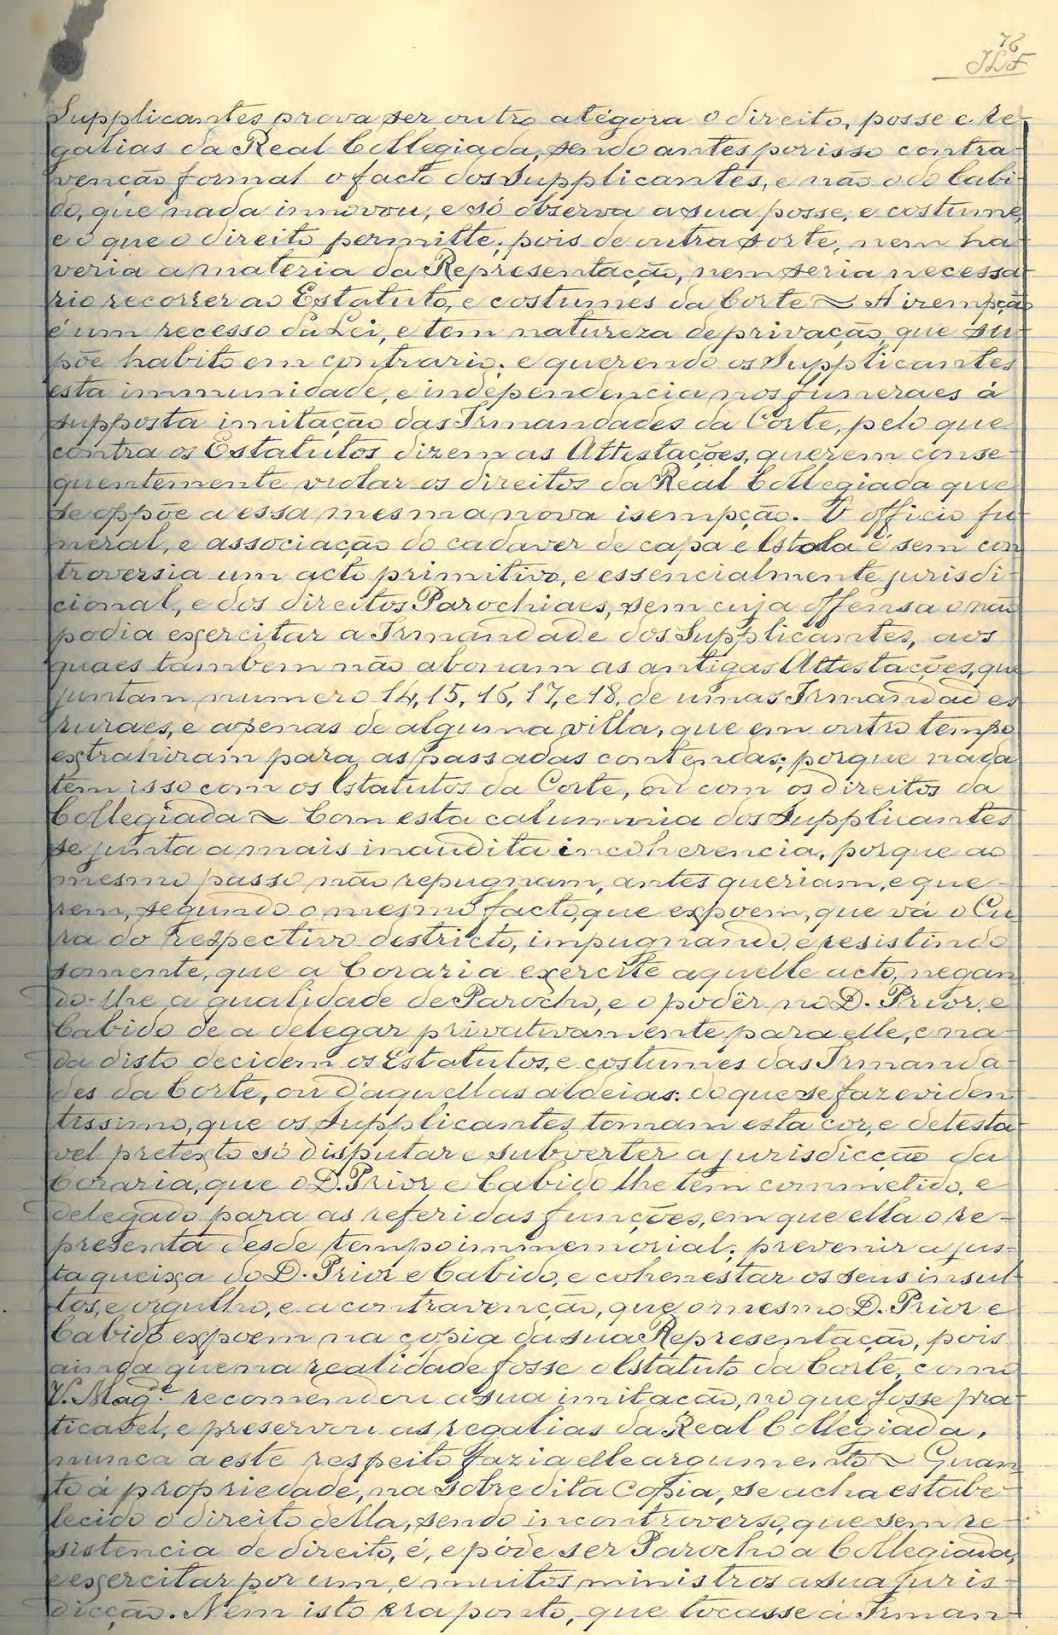 76
JLF
Supplicantes prova ser outro atégora o direito, posse e re-
galias da Real Collegiada, sendo antes por isso contra-
venção formal o facto dos Supplicantes, e não o do Cabi-
do, que nada innovou, e só observa a sua posse, e costume,
e o que o direito permitte; pois de outra sorte, nem ha-
veria a materia da Representação, nem seria necessa-
rio recorrer ao Estatuto, e costumes da Corte ~ A irempção
é um recesso da Lei, e tem natureza de privação, que su-
põe habito em contrario; e querendo os Supplicantes
esta immunidade, e independencia nos funeraes á
supposta imitação das Irmandades da Corte, pelo que
contra os Estatutos dizem as Attestações, querem conse-
quentemente violar os direitos da Real Collegiada que
se oppõe a essa mesma nova isempção. O officio fu-
neral, e associação do cadaver de capa e Estola é sem con
troversia um acto primitivo, e essencialmente jurisdi-
cional, e dos direitos Parochiaes, sem cuja offensa o não
podia exercitar a Irmandade dos Supplicantes, aos
quaes tambem não abonam as antigas Attestações, que
juntam numero 14, 15, 16, 17, e 18, de umas Irmandades
ruraes, e apenas de alguma villa, que em outro tempo
extrahiram para as passadas contendas; porque nada
tem isso com os Estatutos da Corte, ou com os direitos da
Collegiada ~ Com esta calumnia dos Supplicantes
se junta a mais inaudita incoherencia, porque ao
mesmo passo não repugnam, antes queriam, e que-
rem, segundo o mesmo facto, que expoem, que vá o Cu-
ra do respectivo destricto, impugnando, e resistindo
somente, que a Coraria exercite aquelle acto, negan
do-lhe a qualidade de Parocho, e o podêr no D. Prior, e
Cabido de a delegar privativamente para elle, e na-
da disto decidem os Estatutos, e costumes das Irmanda-
des da Corte, ou d'aquellas aldeias: do que se faz eviden
tissimo, que os Supplicantes tomam esta cor, e detesta-
vel pretexto só disputar e subverter a jurisdicção da
Coraria, que o D. Prior e Cabido lhe têm commetido, e
delegado para as referidas funções, em que ella o re-
presenta desde tempo immemorial; prevenir a jus-
ta queixa do D. Prior e Cabido, e cohenestar os seus insul
tos, e orgulho, e a contravenção, que o mesmo D. Prior e
Cabido expoem na copia da sua Representação, pois
ainda que na realidade fosse o Estatuto da Corte, como
V. Magde recomendou a sua imitação, no que fosse pra-
ticavel, e preservou as regalias da Real Collegiada,
nunca a este respeito fazia elle argumento ~ Quan-
to á propriedade, na sobredita Copia, se acha estabe-
lecido o direito della, sendo incontroverso, que sem re-
sistencia de direito, é, e póde ser Parocho a Collegiada,
e exercitar por um, e muitos ministros a sua juris-
dicção. Nem isto era ponto, que tocasse á Irman-